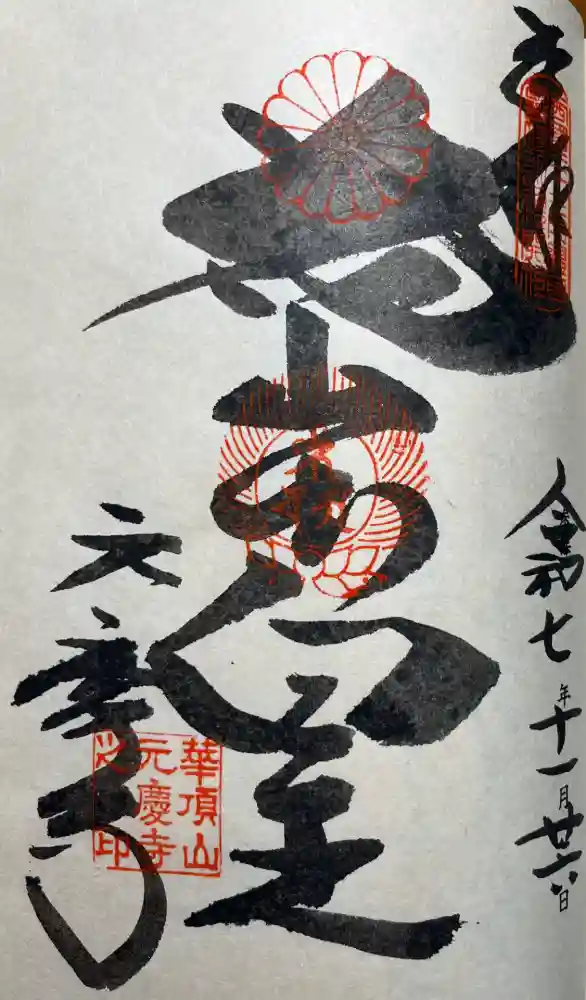 奉拝
令和七年十一月廿六日
花山法皇
元慶寺
華頂山
元慶寺
之印